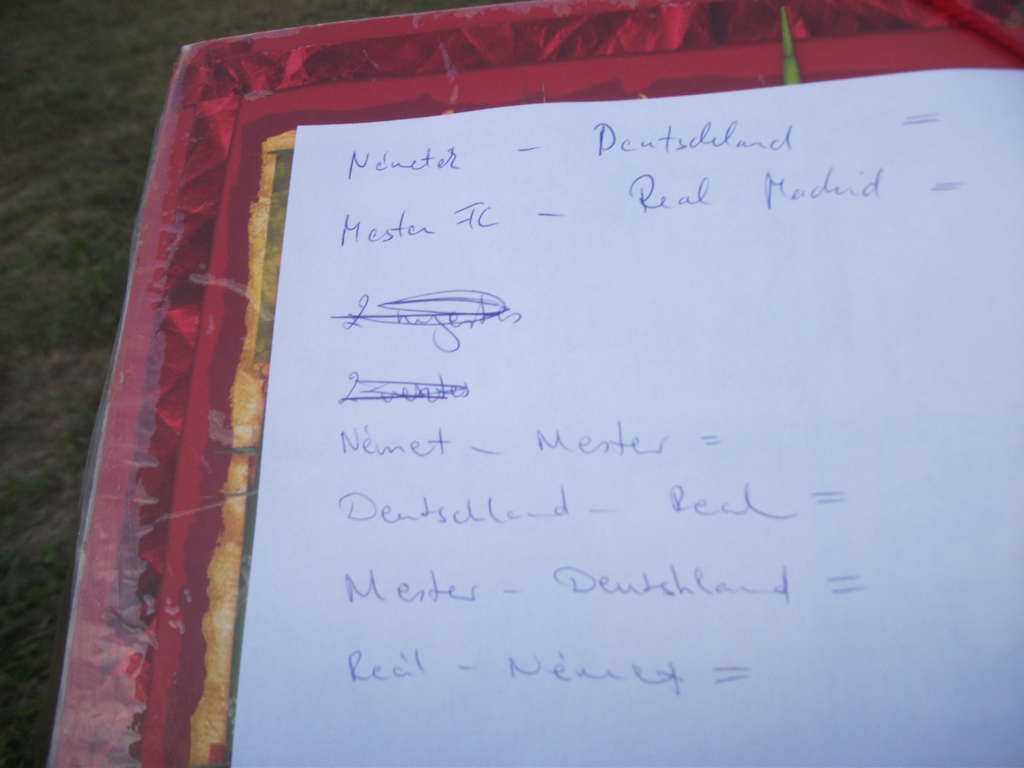 Németek - Deutschland =
Mester FC - Real Madrid =
2
2
Német - Mester =
Deutschland - Real =
Mester - Deutshland =
Reál - Német =